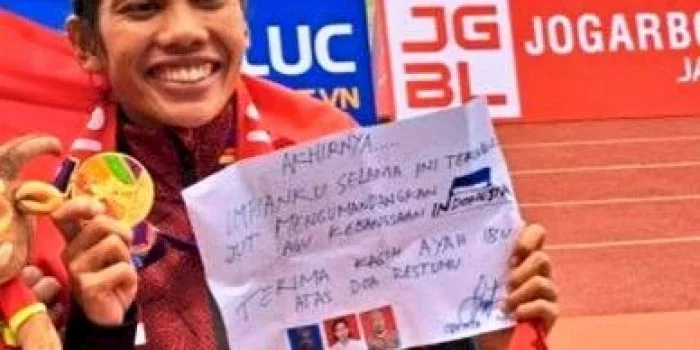 LUC
.VN
JG
BL
JOGARBO
JA
AKHIRNYA.....
IMPIANKU SELAMA INI TERWU
JUT MENGUMANDANGKAN
LAGU KEBANGSAAN INDONESIA
TERIMA KASIH AYAH IBU
ATAS DOA RESTUMU